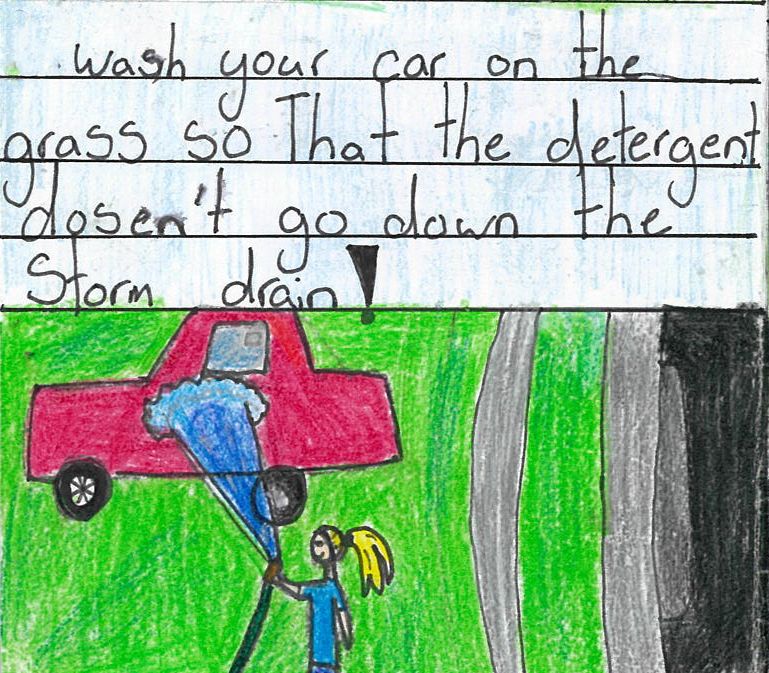 wash your car on the
grass so That the detergent
dosen't go down the
Storm drain!